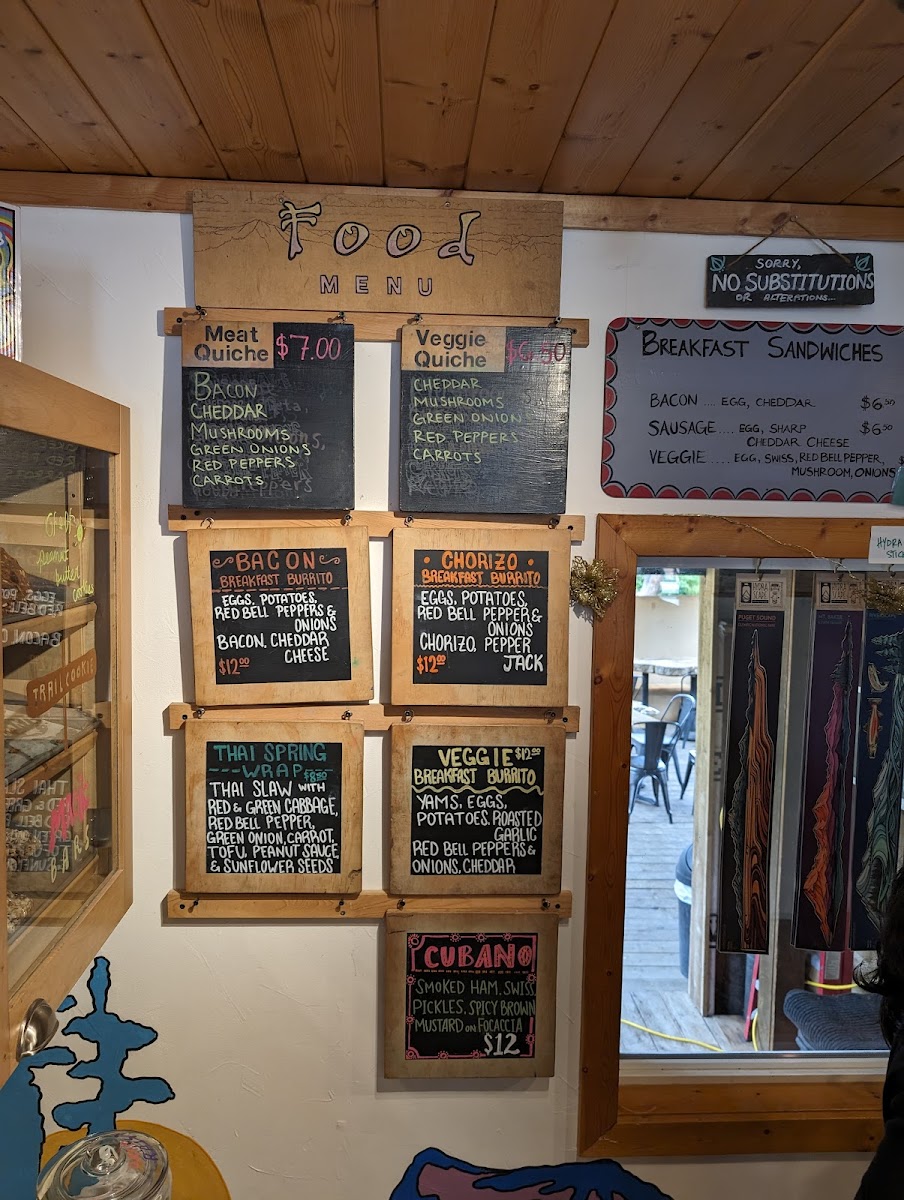 Food
MENU
Meat
Quiche
$7.00
BACON
CHEDDAR
MUSHROOMS
GREEN ONIONS
RED PEPPERS
CARROTS
Veggie
Quiche
CHEDDAR
MUSHROOMS
GREEN ONION
RED PEPPERS
CARROTS
SORRY,
NO SUBSTITUTIONS
OR ALTERATIONS...
BREAKFAST SANDWICHES
BACON .... EGG, CHEDDAR $6.50
SAUSAGE .... EGG, SHARP $6.50
CHEDDAR CHEESE
VEGGIE ..... EGG, SWISS, RED BELL PEPPER,
MUSHROOM, ONIONS
BACON
BREAKFAST BURRITO
EGGS, POTATOES,
RED BELL PEPPERS &
ONIONS
BACON, CHEDDAR
CHEESE
$12.00
CHORIZO
BREAKFAST BURRITO
EGGS, POTATOES,
RED BELL PEPPER &
ONIONS
CHORIZO, PEPPER
JACK
$12.00
THAI SPRING
---WRAP $8.50
THAI SLAW WITH
RED & GREEN CABBAGE,
RED BELL PEPPER,
GREEN ONION, CARROT,
TOFU, PEANUT SAUCE,
& SUNFLOWER SEEDS
VEGGIE $12.00
BREAKFAST BURRITO
YAMS, EGGS,
POTATOES, ROASTED
GARLIC
RED BELL PEPPERS &
ONIONS, CHEDDAR
CUBANO
SMOKED HAM, SWISS
PICKLES, SPICY BROWN
MUSTARD ON FOCACCIA
$12
peanut
butter
cookies
TRAIL COOKIE
BARS
HYDRA
PUGET SOUND